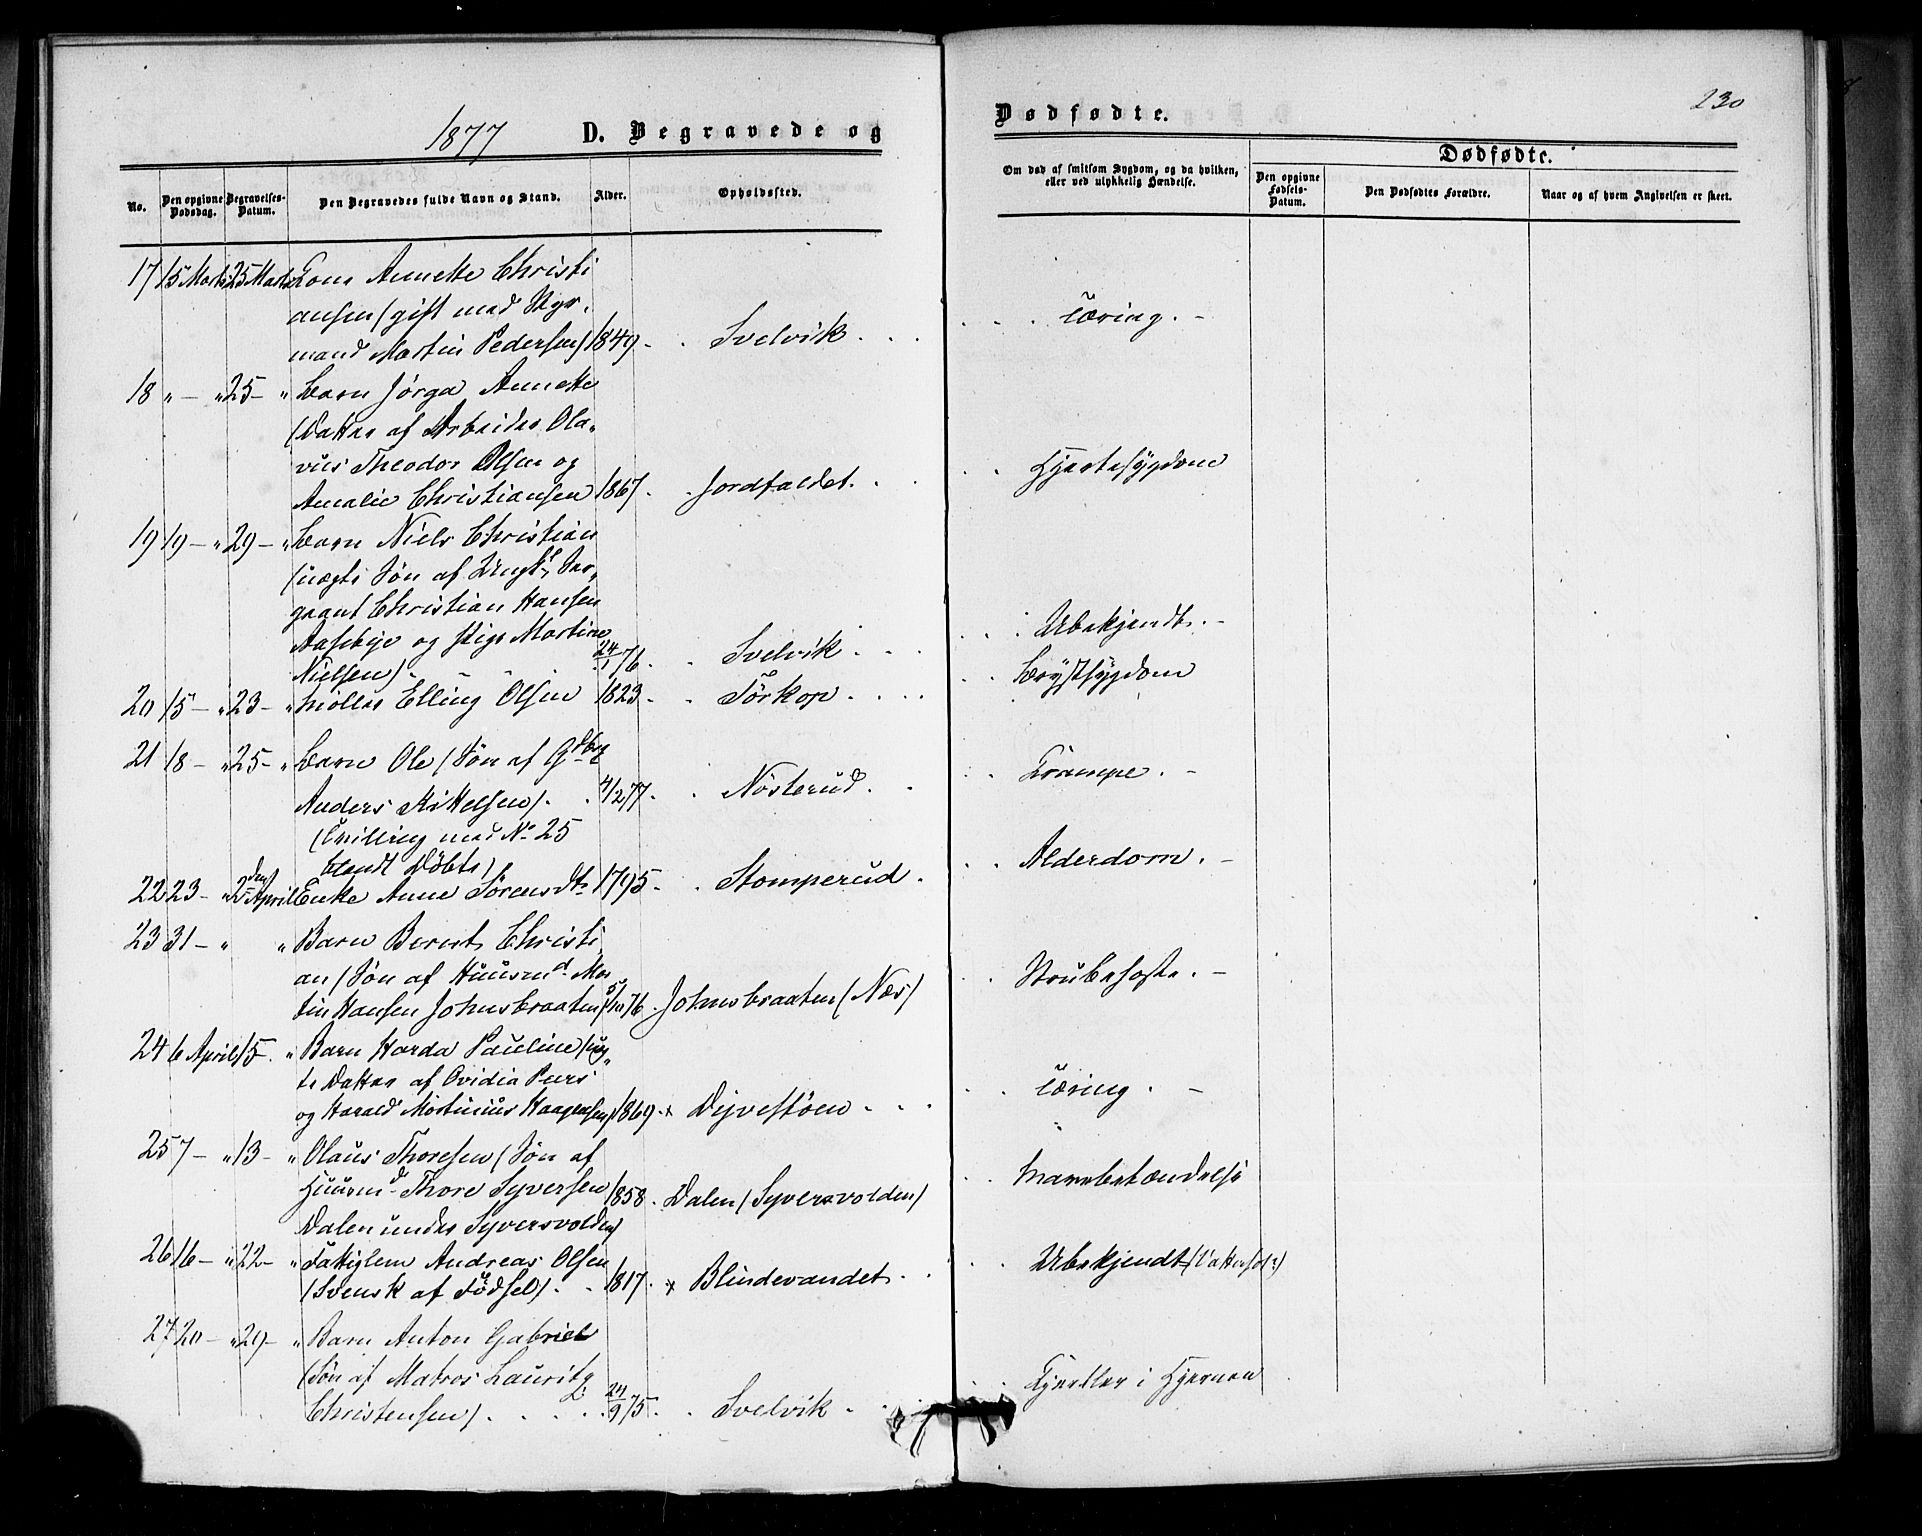 230
1877 D. Begravede og
Dødfødte.
No.
Den opgivne Dødsdag.
Begravelses-Datum.
Den Begravedes fulde Navn og Stand.
Alder.
Opholdssted.
Om død af smitsom Sygdom, og da hvilken, eller ved ulykkelig Hændelse.
Dødfødte.
Den opgivne Fødsels-Datum.
Den Dødfødtes Forældre.
Naar og af hvem Angivelsen er skeet.
17 15 Marts 25 Marts Kone Annette Christi
ansen (gift med Styr,
mand Martin Pedersen) 1849. Svelvik. Tæring.
18 " — " 25 — " Barn Jørga Annette
(Datter af Arbeider Ola,
vus Theodor Olsen og
Amalie Christiansen 1867. Jordfaldet. Hjertesygdom
19 19 — " 29 — " Barn Niels Christian
(uægte Søn af Sergeant Christian Hansen
Aasebye og Pige Martine
Nielsen). 24/1 76. Svelvik. Ubekjendt.
20 15 — " 23 — " Møller Elling Olsen 1823. Tørkop. Brystsygdom
21 18 — " 25 — " Barn Ole (Søn af Gdbr
Anders Kittelsen). 4/2 77. Nøsterud. Krampe.
(Tvilling med No 25
blandt Døbte)
22 23 — " 2den April Enke Anne Sørensdtr 1795. Stomperud. Alderdom.
23 31 — " " Barn Bernt Christi
an (Søn af Huusmd. Mar
tin Hansen Johnsbraaten) 5/10 76. Johnsbraaten (Næs) Strubehoste.
24 6 April 15. " Barn Harda Pauline (uæg,
te Datter af Ovidia Peers
og Harald Mortinius Haagensen) 1869. × Dyvestøen. Tæring.
25 7 — " 13 — " Olaus Thoresen (Søn af
Huusmd Thore Syversen
Dalen under Syversvolden) 1858. Dalen (Syversvolden) Marvbetændelse
26 16 — " 22 — " Fattiglem Andreas Olsen
(Svensk af Fødsel). 1817. × Blindevandet. Ubekjendt (Vattersot?)
27 20 — " 29 — " Barn Anton Gabriel
(Søn af Matros Lauritz
Christensen). 24/9 75. Svelvik. Kjertler i Hjernen